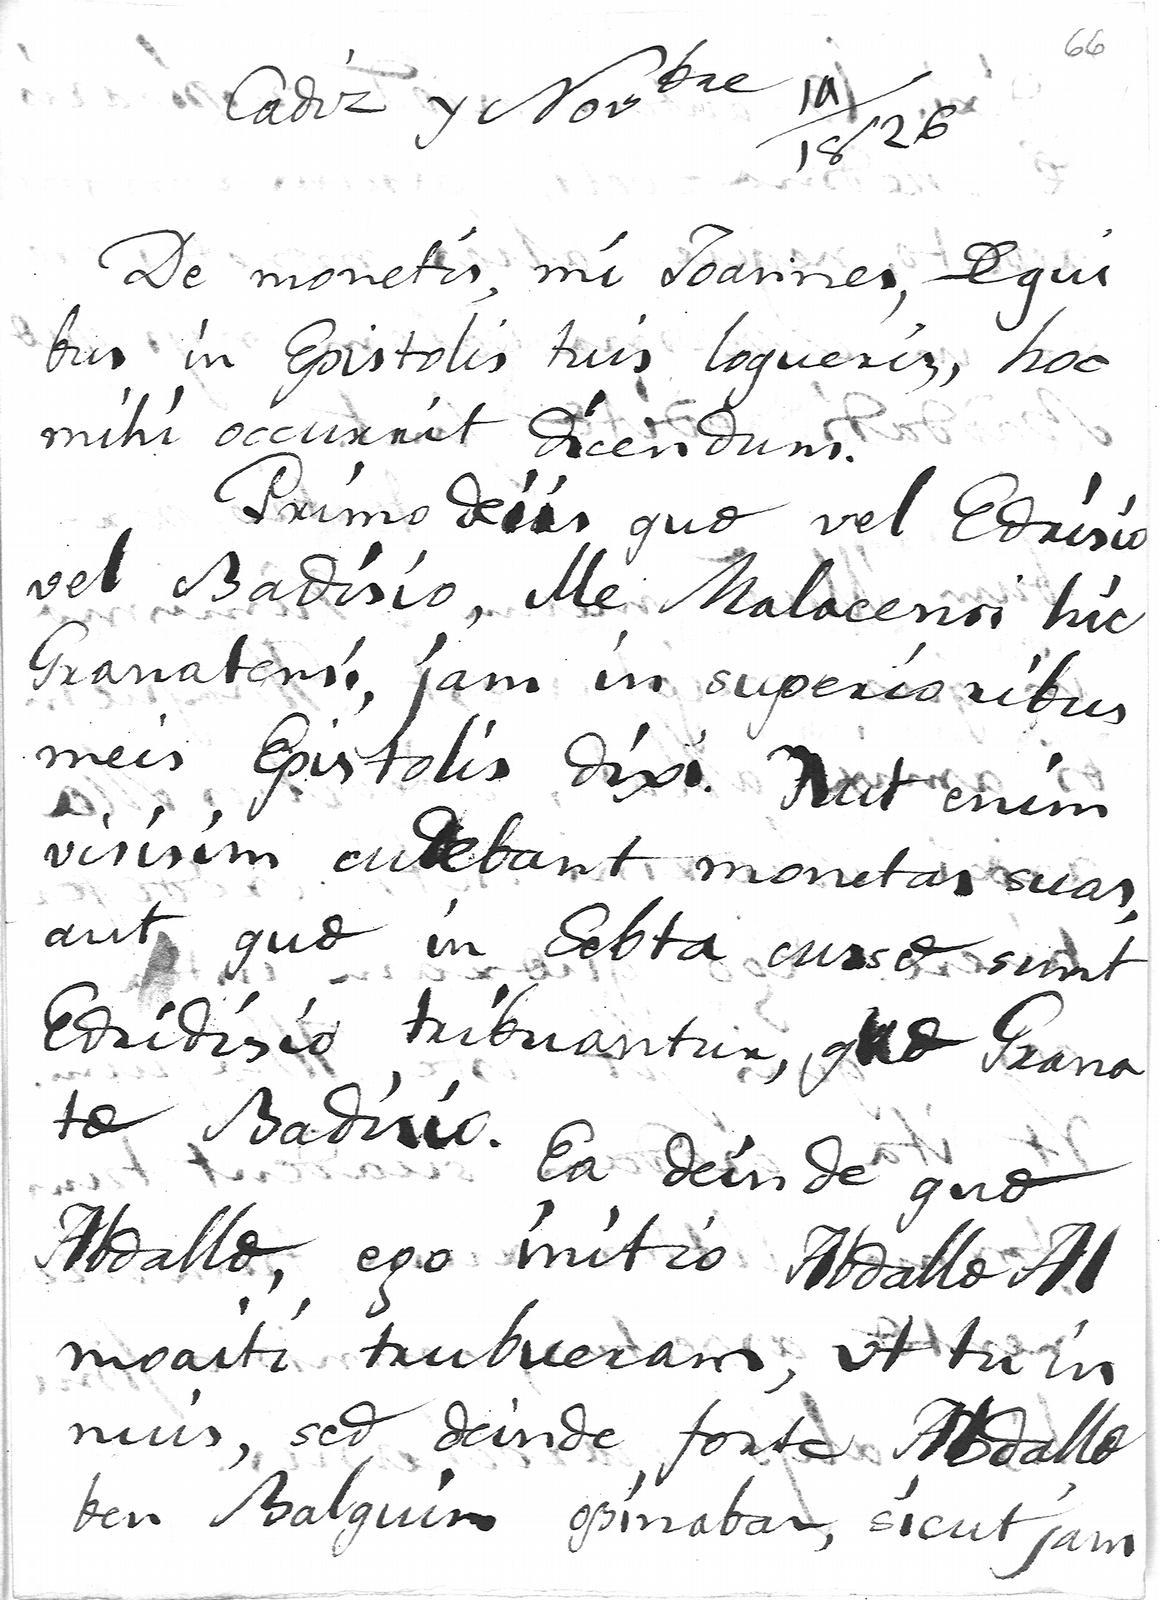 66
Cadiz y Novbre 19/1826
De monetis, mi Joannes, qui
bus in Epistolis tuis loqueris, hoc
mihi occurrit dicendum.
Primo de iis quæ vel Edrisio
vel Badisio, ille Malacensi hic
Granatensi, jam in superioribus
meis Epistolis dixi. Aut enim
visisim cudebant monetas suas,
aut quæ in Sebta cusæ sunt
Edridisio tribuantur, quæ Grana
tæ Badisio. Ea deinde quæ
Abdallæ, ego initio Abdallæ Al
moaiti tribueram, ut tu in
nuis, sed deinde forte Abdallæ
ben Balguin opinabar, sicut jam